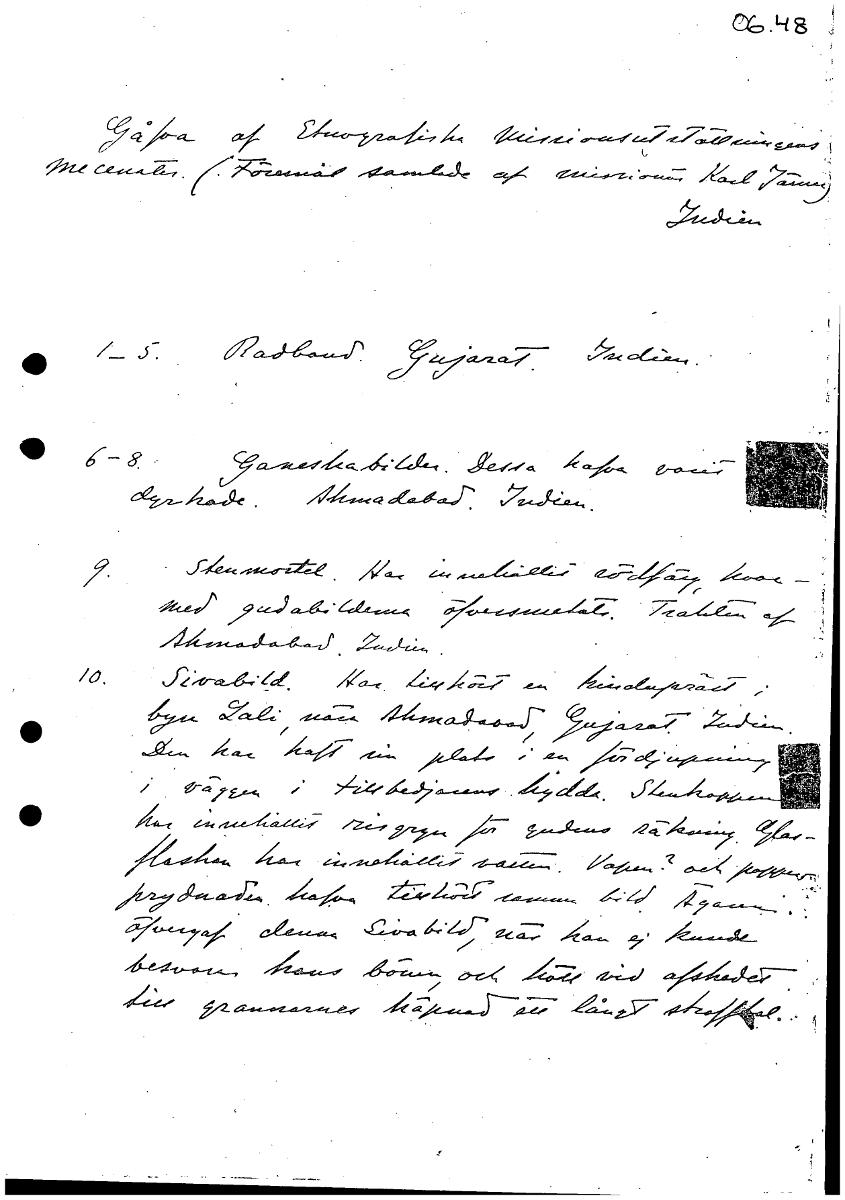 06.48
Gåfva af Etnografiska Missionsutställningens
mecenater. (Föremål samlade af missionär Karl
Indien
1–5. Radband. Gujarat. Indien.
6–8. Ganeshabilder. Dessa hafva varit
dyrkade. Ahmadabad. Indien.
9. Stenmortel. Har innehållit rödfärg, hvar-
med gudabilderna öfversmetats. Trakten af
Ahmadabad. Indien.
10. Sivabild. Har tillhört en hindupräst i
byn Lali, nära Ahmadavad, Gujarat. Indien.
Den har haft sin plats i en fördjupning
i väggen i tillbedjarens hydda. Stenkoppen
har innehållit risgryn för gudens räkning. Glas-
flaskan har innehållit vatten. Vapen? och pappers-
prydnaden hafva tillhört samma bild. Ägaren
öfvergaf denna Sivabild, när han ej kunde
besvara hans böner, och höll vid afskedet
till grannarnes häpnad ett långt strafftal.